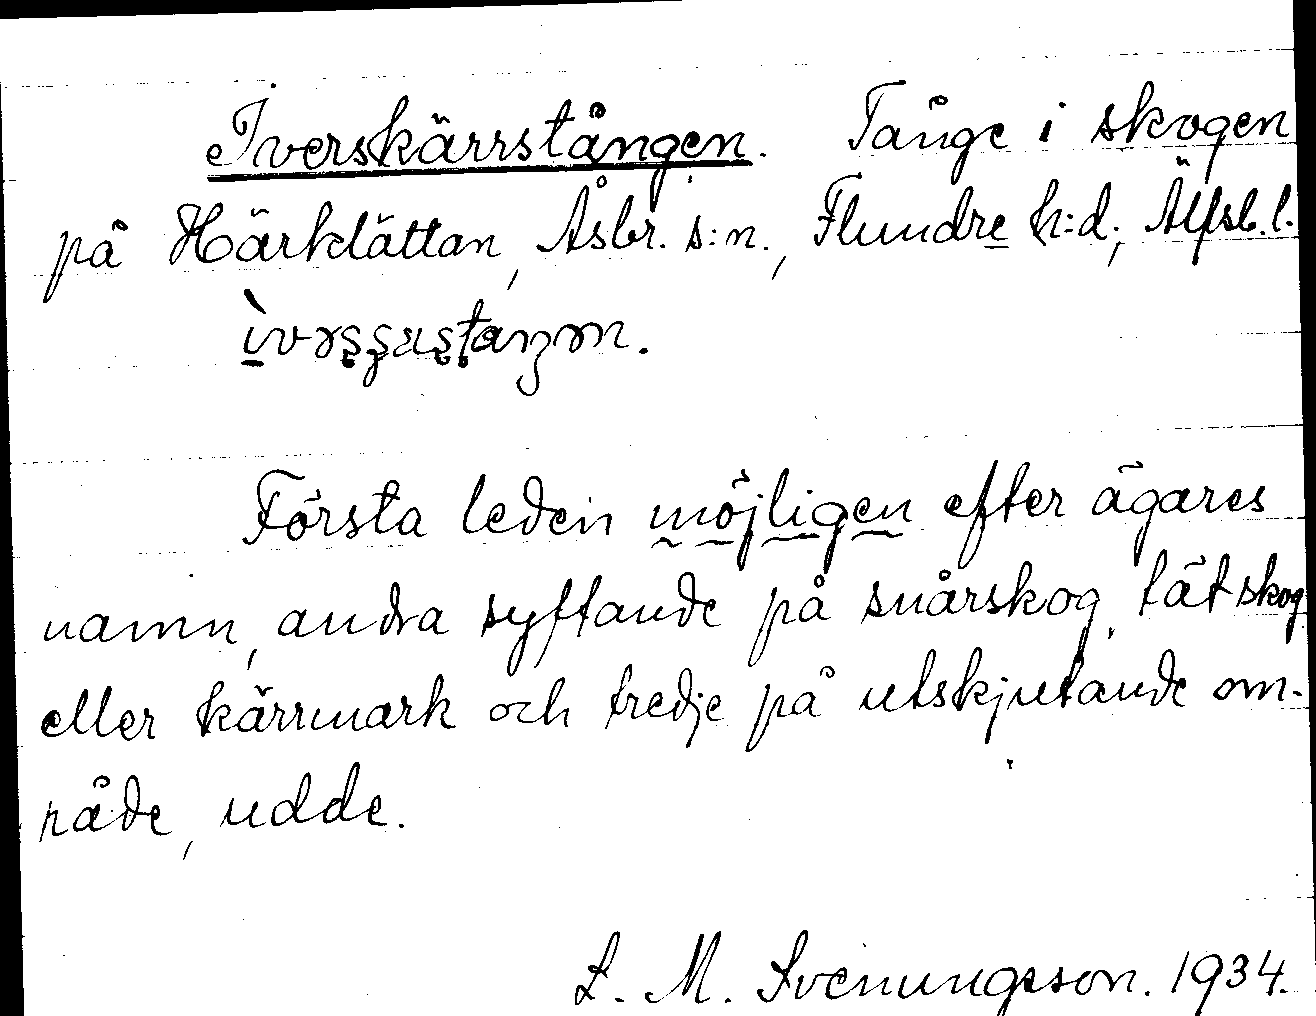 Iverskärrstången. Tånge i skogen
på Härklättan, Åsbr. s:n., Flundre h:d., Älfsb. l.

Första leden möjligen efter ägares
namn, andra syftande på snårskog, tät skog
eller kärrmark och tredje på utskjutande om-
råde, udde.
L. M. Svenungsson. 1934.